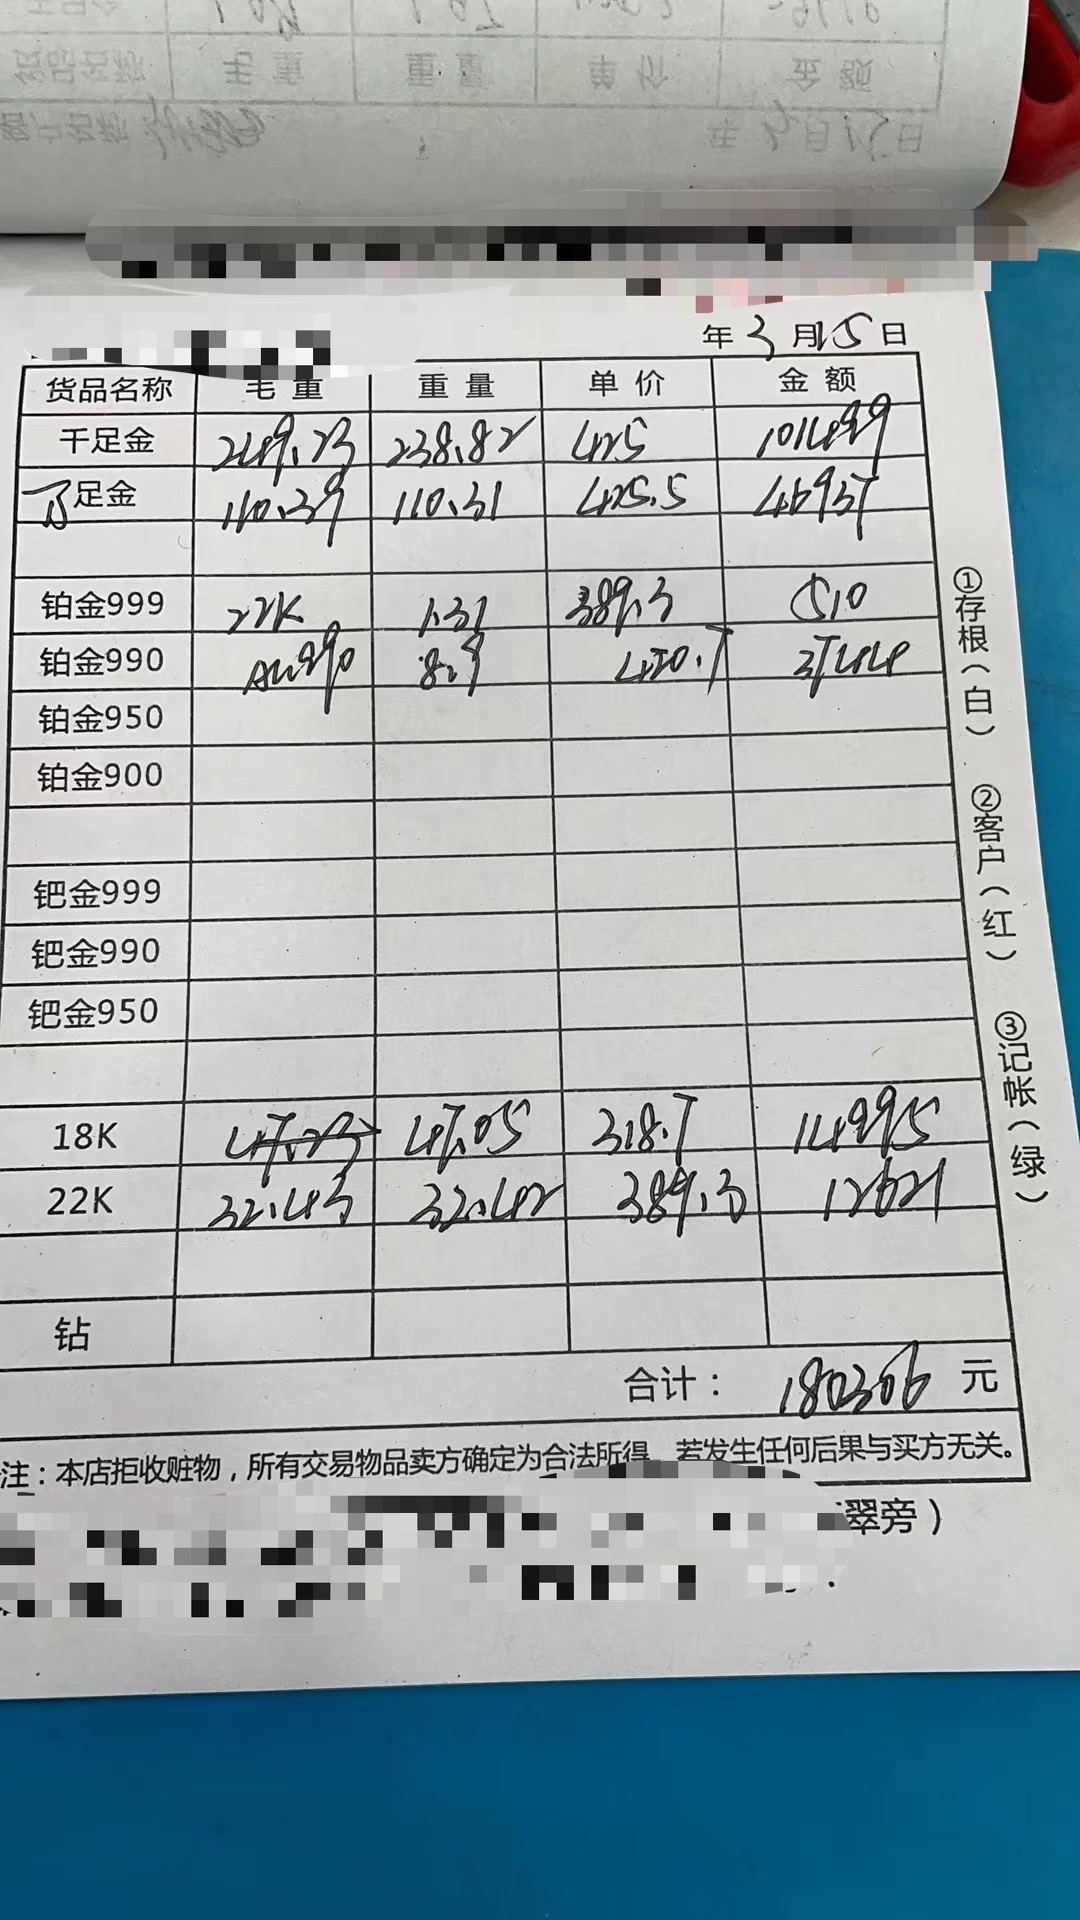 年3月15日
货品名称 毛重 重量 单价 金额
千足金 249.23 238.82 425 101499
万足金 110.39 110.31 425.5 46937
铂金999 22K 1.31 389.3 510
铂金990 Au990 8.9 420.7 3744
铂金950
铂金900
钯金999
钯金990
钯金950
18K 47.23 47.05 318.7 14995
22K 32.43 32.42 389.3 12621
钻
合计： 180306 元
注：本店拒收赃物，所有交易物品卖方确定为合法所得，若发生任何后果与买方无关。
翠旁）
①存根（白）
②客户（红）
③记帐（绿）